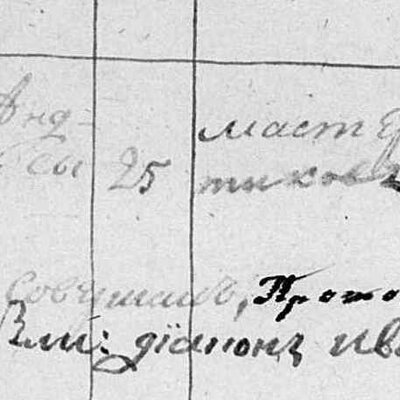 Анд-
сы 25
мастер
тиков
совершалъ, Прото
Вли: діаконъ Ив